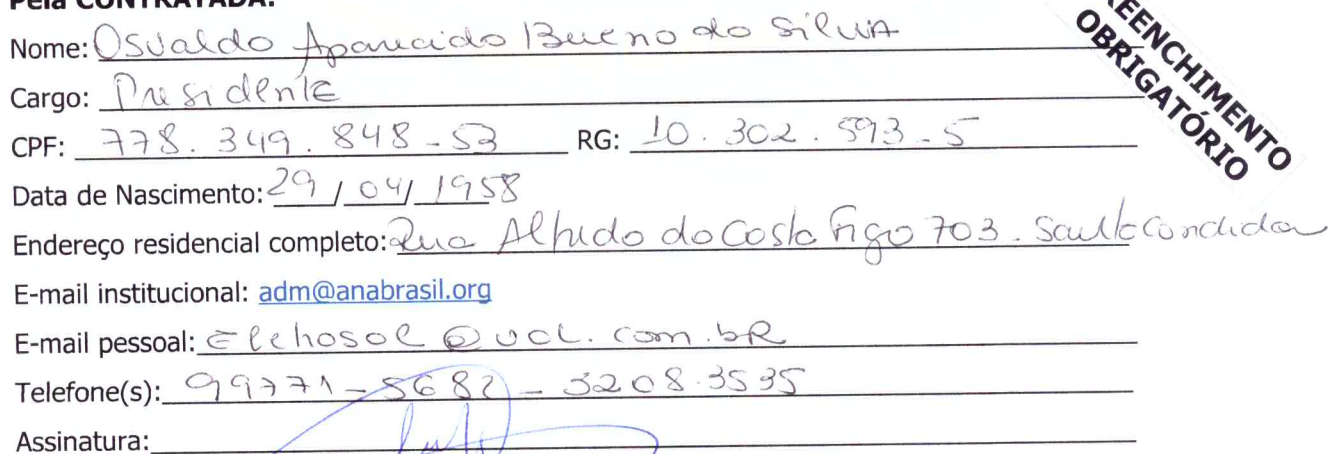 Pela CONTRATADA:
PREENCHIMENTO
OBRIGATÓRIO
Nome: Osvaldo Aparecido Bueno da Silva
Cargo: Presidente
CPF: 778.349.848-53 RG: 10.302.593-5
Data de Nascimento: 29/04/1958
Endereço residencial completo: Rua Alfredo da Costa Figo 703. Santa Candida
E-mail institucional: adm@anabrasil.org
E-mail pessoal: @uol.com.bR
Telefone(s): 99771-5682 - 3208.3535
Assinatura: